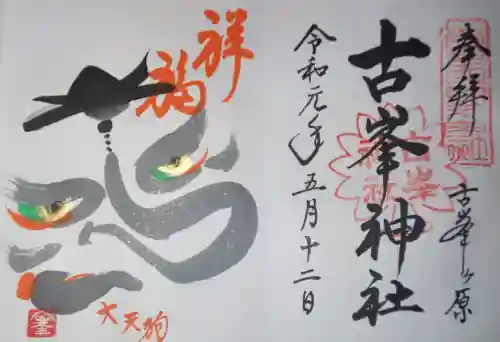 奉拝
古峯ヶ原
古峯神社
令和元年五月十二日
祥
福
大天狗